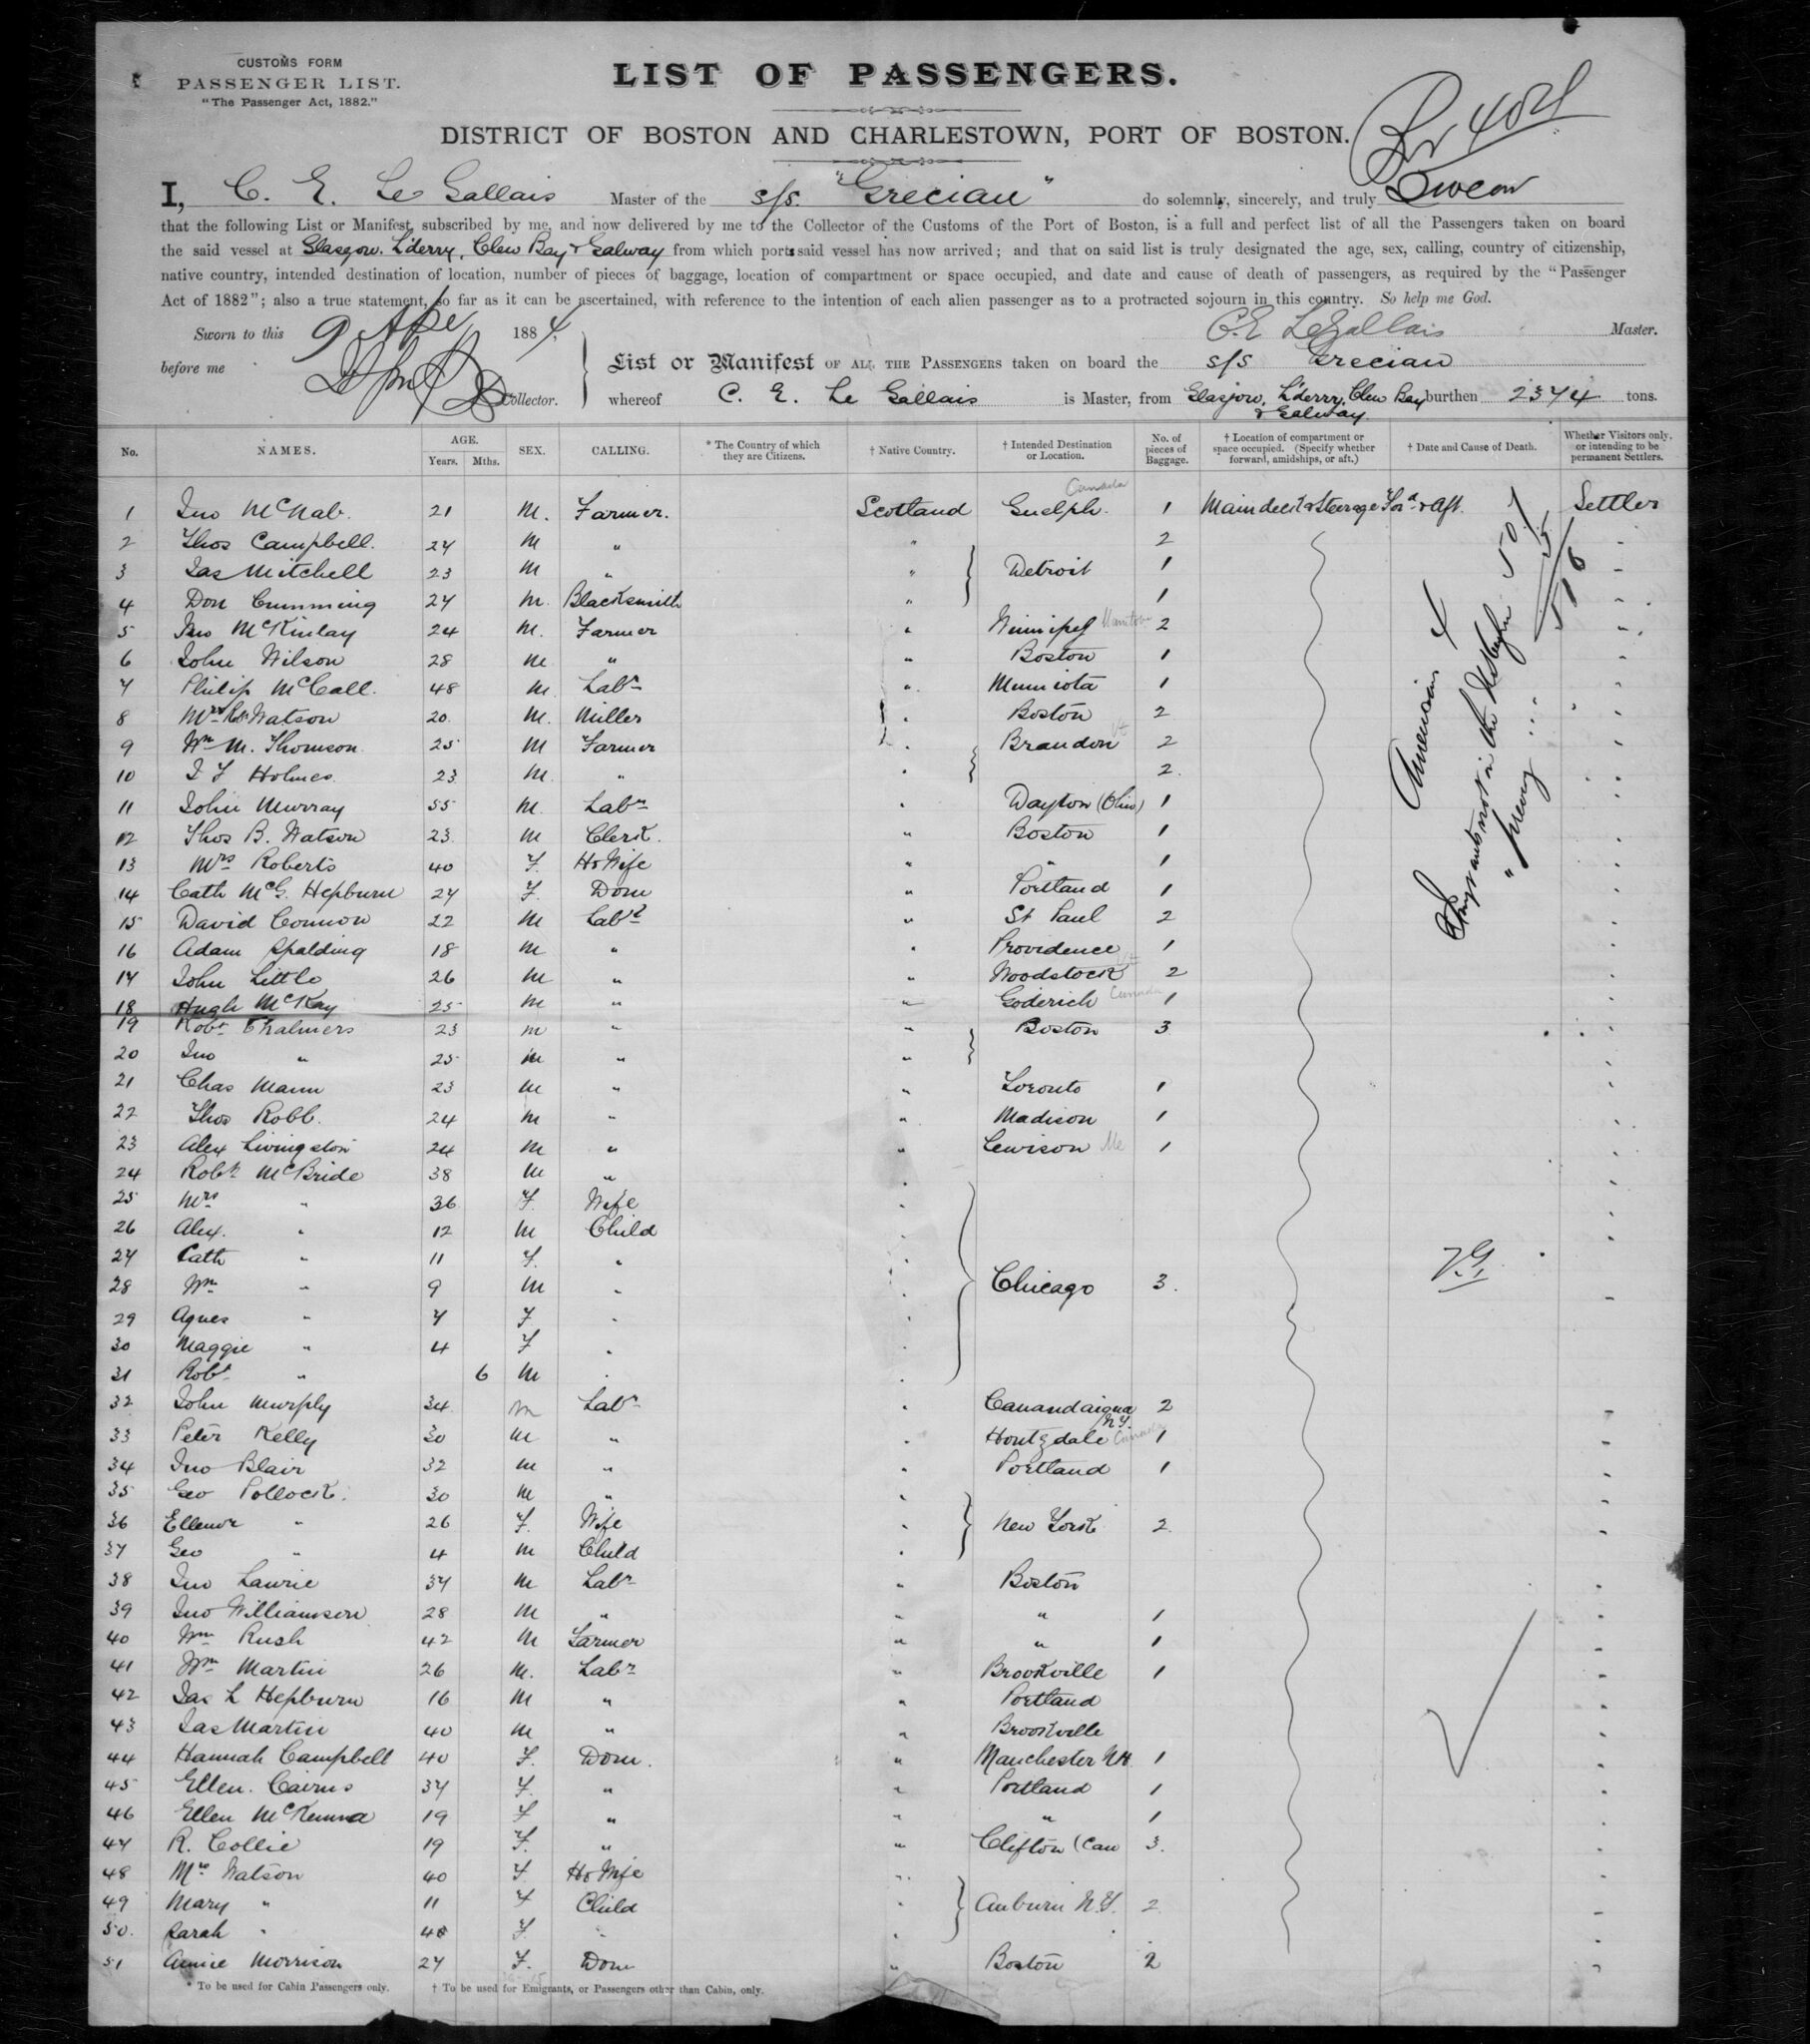 CUSTOMS FORM
PASSENGER LIST.
"The Passenger Act, 1882."
LIST OF PASSENGERS.
DISTRICT OF BOSTON AND CHARLESTOWN, PORT OF BOSTON.
I, C. E. Le Gallais Master of the s/s. "Grecian" do solemnly, sincerely, and truly Swear
that the following List or Manifest, subscribed by me, and now delivered by me to the Collector of the Customs of the Port of Boston, is a full and perfect list of all the Passengers taken on board
the said vessel at Glasgow. L'derry, Clew Bay & Galway from which ports said vessel has now arrived; and that on said list is truly designated the age, sex, calling, country of citizenship,
native country, intended destination of location, number of pieces of baggage, location of compartment or space occupied, and date and cause of death of passengers, as required by the "Passenger
Act of 1882"; also a true statement, so far as it can be ascertained, with reference to the intention of each alien passenger as to a protracted sojourn in this country. So help me God.
Sworn to this 9 Apr 1884, C. E. LeGallais Master.
before me Collector.
List or Manifest OF ALL THE PASSENGERS taken on board the s/s Grecian
whereof C. E. Le Gallais is Master, from Glasgow, L'derry, Clew Bay & Galway. burthen 2374 tons.
No. NAMES. AGE. Years. Mths. SEX. CALLING. * The Country of which they are Citizens. † Native Country. † Intended Destination or Location. No. of pieces of Baggage. † Location of compartment or space occupied. (Specify whether forward, amidships, or aft.) † Date and Cause of Death. Whether Visitors only, or intending to be permanent Settlers.
1 Jno McNab. 21 M. Farmer. Scotland Guelph. Canada 1 Main deck & Steerage For'd & Aft. Settler
2 Thos Campbell. 24 M " " 2
3 Jas Mitchell 23 M " " Detroit 1
4 Don Cumming 24 M. Blacksmith " 1
5 Jno McKinlay 24 M. Farmer " Winnipeg Manitoba 2
6 John Wilson 28 M " " Boston 1
7 Philip McCall. 48 M. Labr " 1
8 Watson 20. M. Miller " Boston 2
9 Wm M. Thomson 25 M Farmer " Brandon Vt 2
10 J F Holmes 23 M. " " 2.
11 John Murray 55 M. Labr " Dayton (Ohio) 1
12 Thos B. Watson 23 M Clerk. " Boston 1
13 Mrs Roberts 40 F. Ho Wife " " 1
14 Cath McG. Hepburn 27 F. Dom " Portland 1
15 David Connon 22 M Labr " St Paul 2
16 Adam Spalding 18 M " " Providence 1
17 John Little 26 M " " Woodstock Vt 2
18 Hugh McKay 25 M " " Goderich Canada 1
19 Robt Chalmers 23 M " " Boston 3
20 Jno " 25 M " "
21 Chas Mann 23 M " " Toronto 1
22 Thos Robb. 24 M " " Madison 1
23 Alex Livingston 24 M " " Lewison Me 1
24 Robt McBride 38 M " "
25 Mrs " 36 F. Wife "
26 Alex. " 12 M Child "
27 Cath " 11 F. " "
28 Wm " 9 M " " Chicago 3.
29 Agnes " 7 F " "
30 Maggie " 4 F " "
31 Robt " 6 M " "
32 John Murphy 34 M Labr " Canandaigua N.Y. 2
33 Peter Kelly 30 M " " Houtzdale Canada 1
34 Jno Blair 32 M " " Portland 1
35 Geo Pollock. 30 M " "
36 Ellenor " 26 F. Wife " New York 2
37 Geo " 4 M Child "
38 Jno Lawrie 37 M Labr " Boston
39 Jno Williamson 28 M " " " 1
40 Wm Rush 42 M Farmer " " 1
41 Wm Martin 26 M. Labr " Brookville 1
42 Jas L Hepburn 16 M " " Portland
43 Jas Martin 40 M " " Brookville
44 Hannah Campbell 40 F. Dom. " Manchester NH 1
45 Ellen. Cairns 37 F. " " Portland 1
46 Ellen McKenna 19 F " " " 1
47 R. Collie 19 F. " " Clifton (Can 3.
48 Mrs Watson 40 F Ho Wife "
49 Mary " 11 F Child " Auburn N.Y. 2
50. Sarah " F. " "
51 Annie Morrison 27 F. Dom " Boston 2
Americans 4
507
516
* To be used for Cabin Passengers only. † To be used for Emigrants, or Passengers other than Cabin, only.